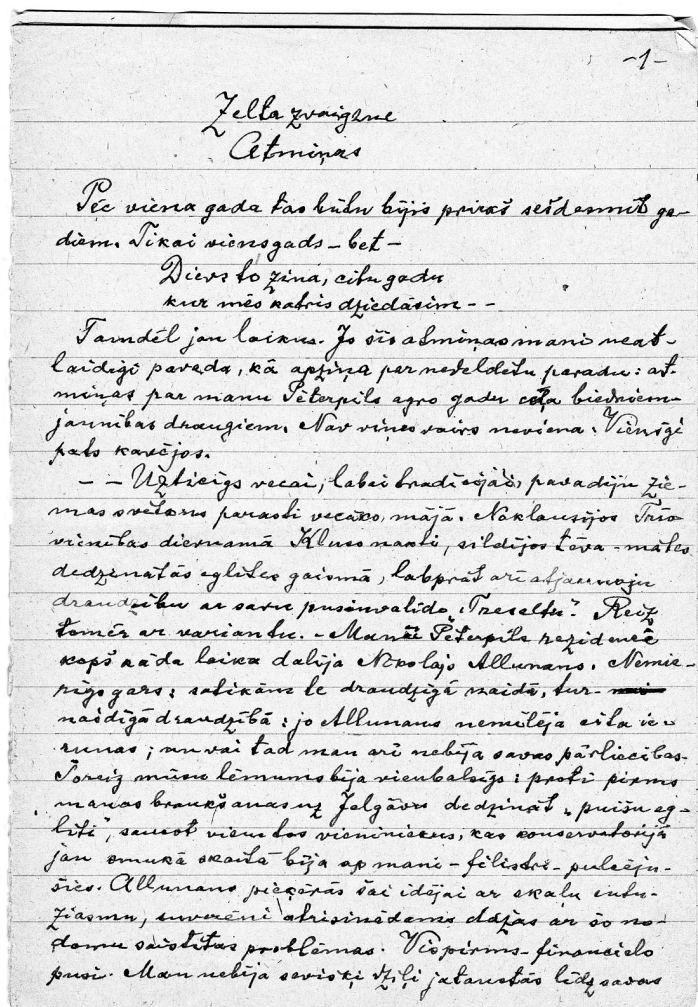 -1-
Zelta zvaigzne
Atmiņas
Pēc viena gada tas būtu bijis priekš sešdesmit ga-
diem. Tikai viens gads - bet -
Dievs to zina, citu gadu
kur mēs katris dziedāsim - -
Tamdēļ jau laikus. Jo šīs atmiņas mani neat-
laidīgi pavada, kā apziņa par nedeldētu paradu: at-
miņas par manu Pēterpils agro gadu ceļa biedriem-
jaunības draugiem. Nav viņos vairs neviena. Vienīgi
pats kavējos.
- - Uzticīgs vecai, labai tradicijai, pavadīju zie-
mas svētkus parasti vecāko mājā. Noklausījos Trīs
vienības dievnamā Klusu nakti, sildījos tēva - mātes
dedzinātās eglītes gaismā, labprāt arī atjaunoju
draudzību ar savu pusinvalīdo "Treseltu". Reiz
tomēr ar variantu. - Manu Pēterpils rezidenci
kopš kāda laika dalīja Nikolajs Allunans. Nemie-
rīgs gars: satikām te draudzīgā naidā, tur -
naidīgā draudzībā: jo Allunans nemīlēja cita ie-
runas; nu vai tad man arī nebija savas pārliecības.
Toreiz mūsu lēmums bija vienbalsīgs: proti pirms
manas braukšanas uz Jelgavu dedzināt "puišu eg-
līti", saucot vientos vieniniekus, kas konservatorijā
jau smukā skaitā bija ap mani - filistri - pulcēju-
šies. Allunans pieķērās šai idejai ar skaļu entu-
ziasmu, suverēni atrisinēdams dažas ar šo no-
domu saistītas problēmas. Vispirms - financielo
pusi. Man nebija seviški dziļi jātaustās līdz savas